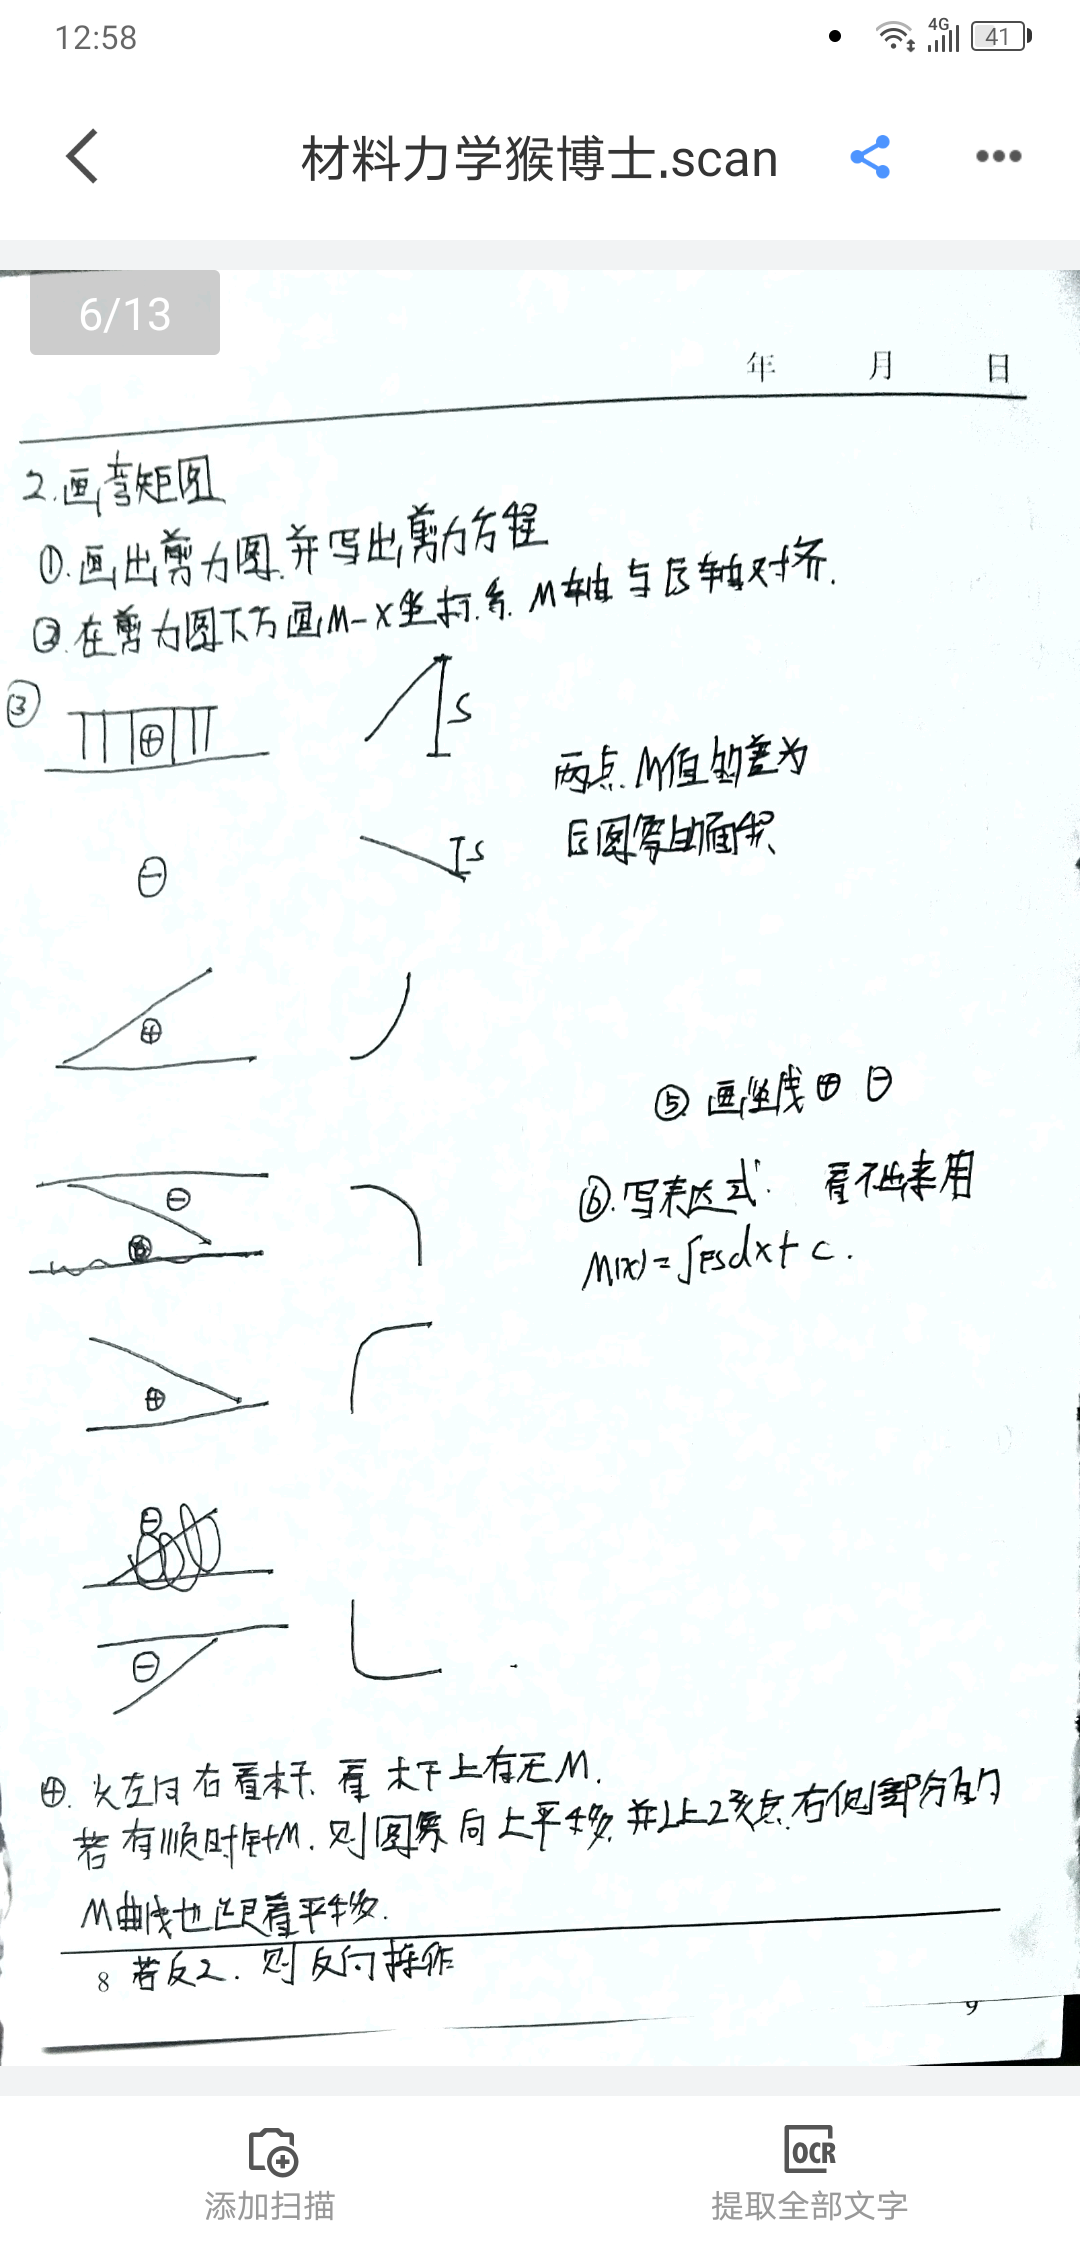 12:58
4G
41
材料力学猴博士.scan
6/13
年 月 日
2.画弯矩图
①.画出剪力图.并写出剪力方程
②.在剪力图下方画M-X坐标系.M轴与Fs轴对齐.
③
⊕
S
两点.M值的差为
Fs图象的面积
⊖
S
⊕
⊖
⑤ 画竖线⊕ ⊖
⑥.写表达式. 看不出来用
M(x)=∫Fsdx+C.
⊕
⊖
⊖
④.从左向右看杆.看杆上有无M.
若有顺时针M.则图象向上平移.并以上2突点右侧部分的
M曲线也跟着平移.
8 若反之.则反向操作
9
添加扫描
OCR
提取全部文字